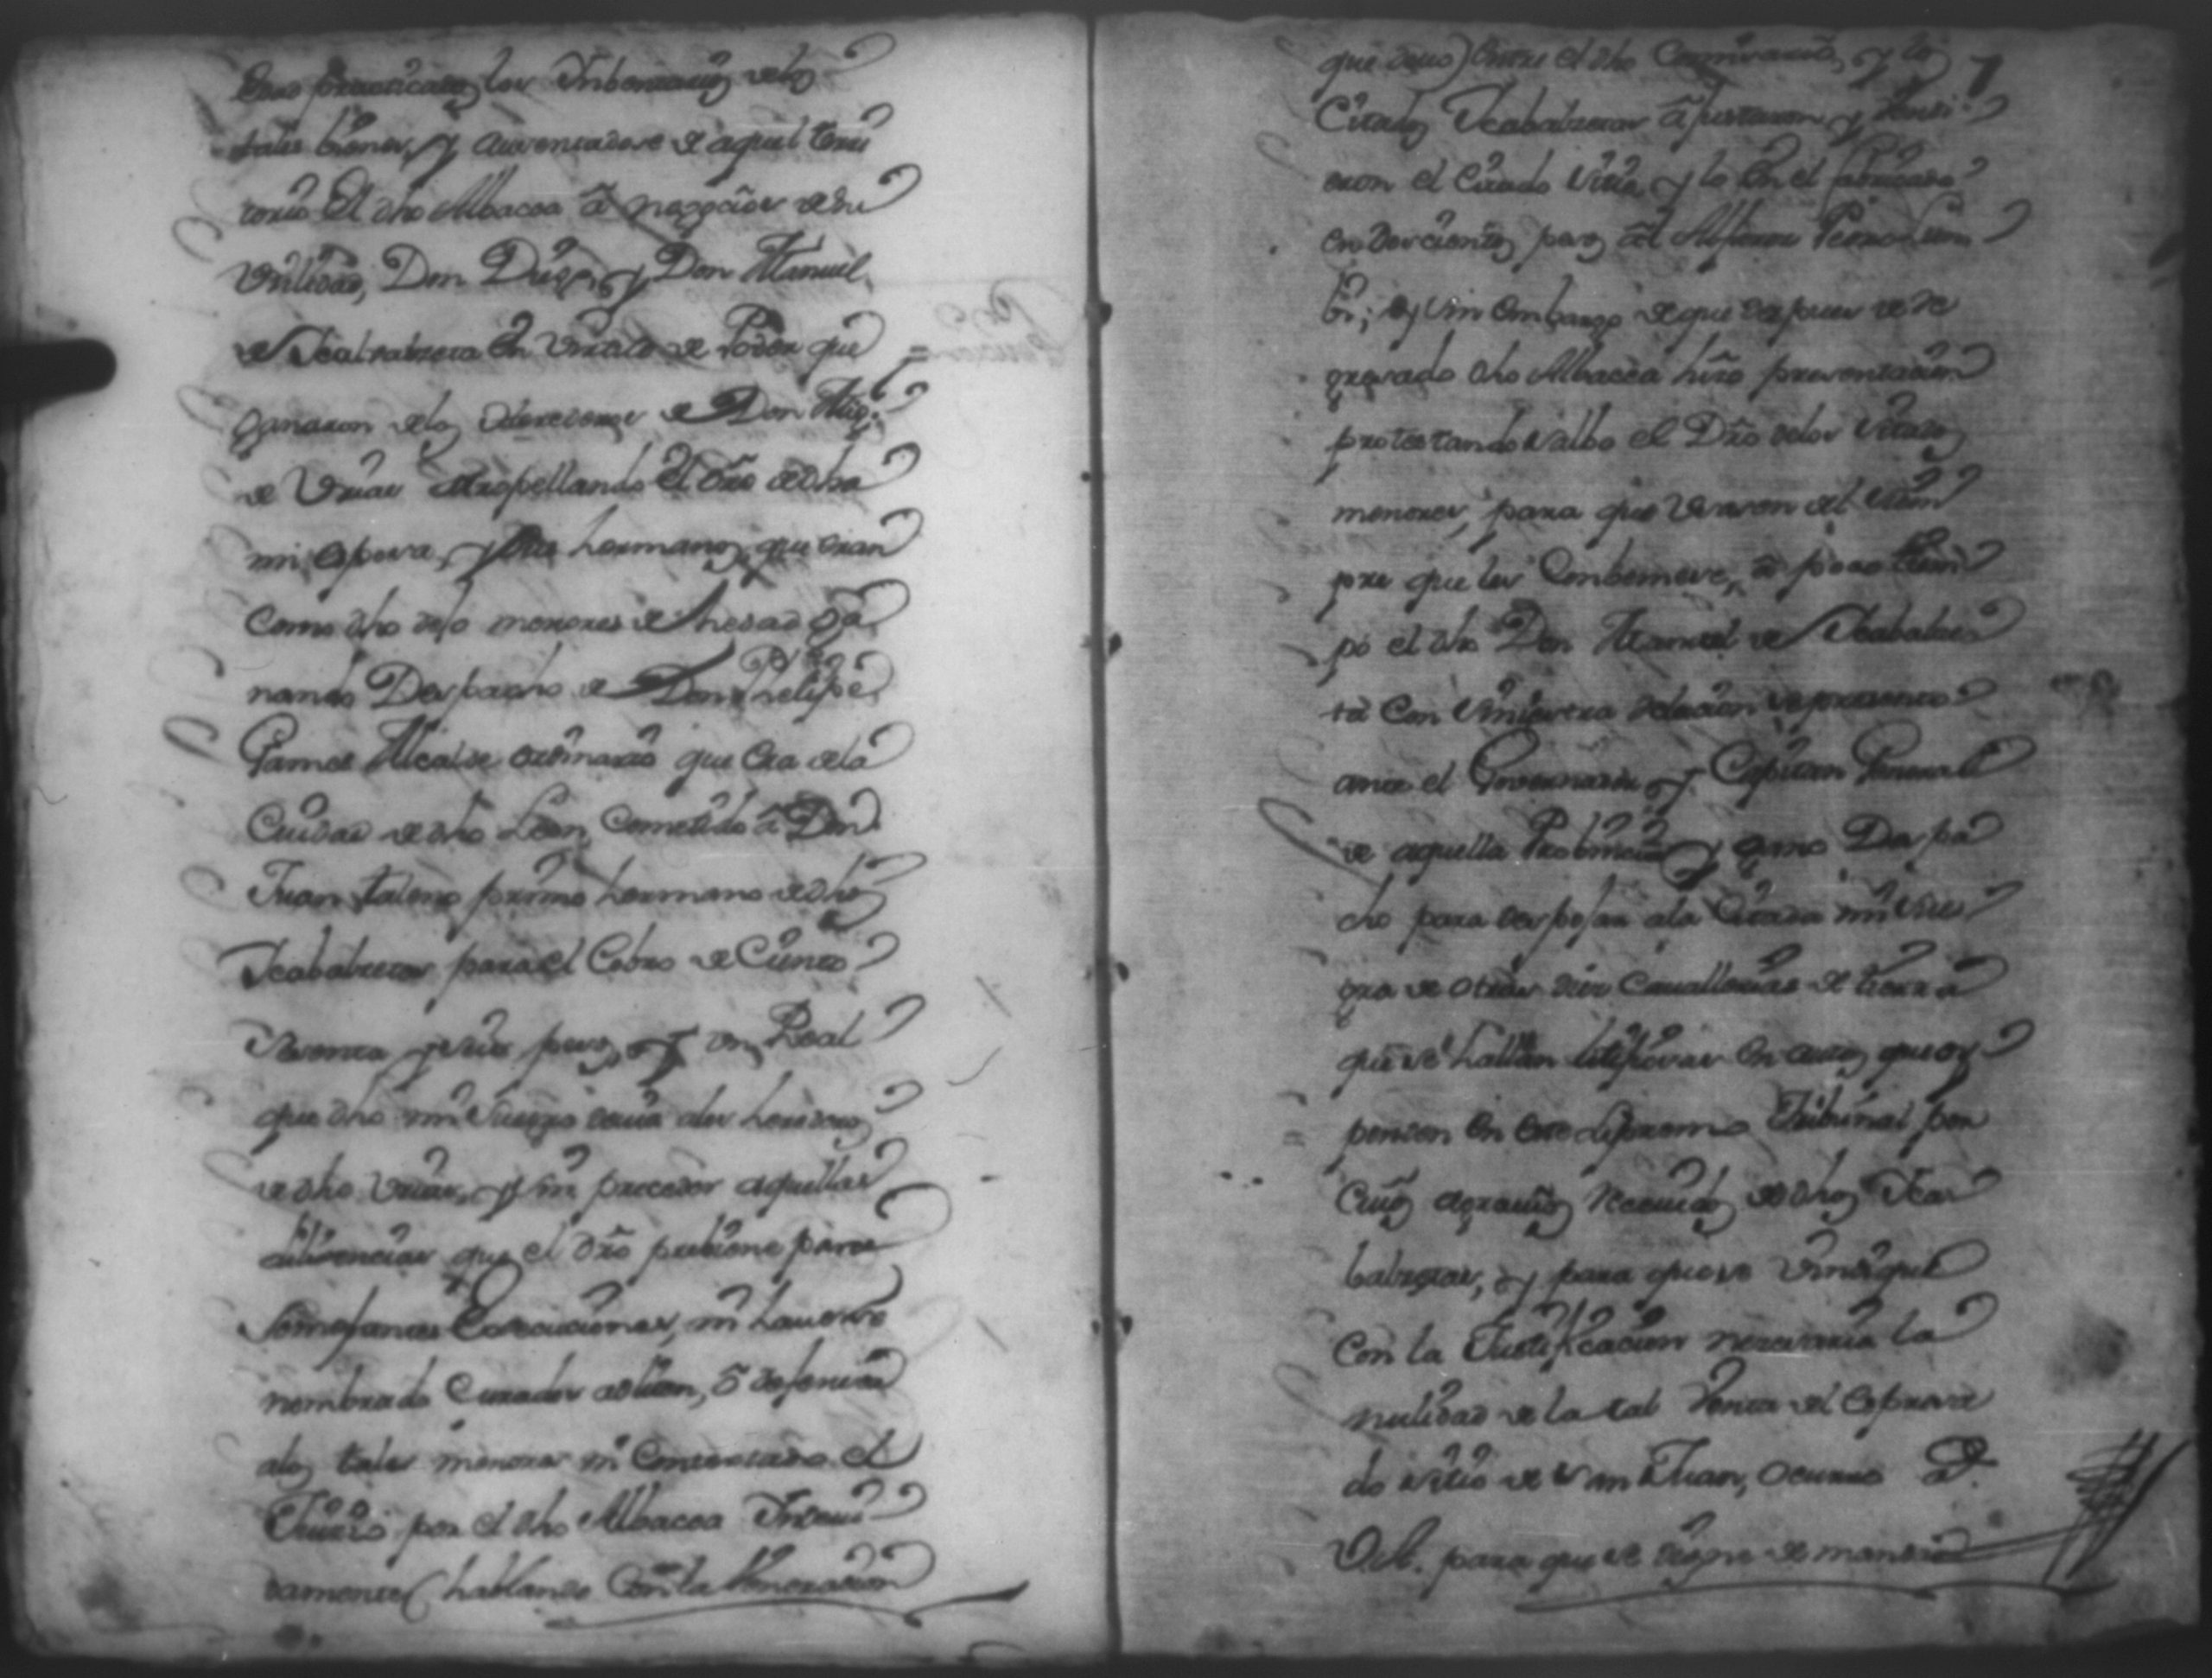 practicaron los Inbentarios de los
tales bienes, y ausentadose de aquel terri
torio El dho Albacea â negocios de su
Vtilidad, Don Diego, y Don Manuel
de Icabalzeta En Virtud de Poder que
ganaron de los Herederos de Don Migl.
de Vrias atropellando El dro. de dha
mi esposa, y sus hermanos, que eran
Como dho dejo menores de hedad ga
nando Despacho de Don Phelipe
Gamez Alcalde ordinario que Era de la
Ciudad de dho Leon, Cometido â Don
Juan taleno primo hermano de dhos
Icabalzetas para el Cobro de Ciento
Sesenta y seis pesos, y vn Real
que dho mi Suegro deuia a los herederos
de dho Vrias, y sin preceder aquellas
diligencias que el dro prebiene para
Semejantes Execuciones, ni hauerse
nombrado Curador ad litem, ô defensor
a los tales menores ni Contestado el
Juicio por el dho Albacea
damente (hablando Con la Veneracion
que deuo) Entre el dho Comisario, y los 7
Citados Icabalzetas ajustaron y
eron el Citado Sitio, y lo En el fabricado
en Doscientos pesos al Alferez
y sin embargo de que despues de re
gresado dho Albacea hizo presentacion
protestando salbo el Dro de los Citados
menores, para que Vsaren del siem
pre que les Conbiniese, â poco tiem
po el dho Don Manuel de Icabalze
ta Con siniestra relacion se presento
ante el Governador y Capitan General
de aquella Probincia y gano Despa
cho para despojar a la Citada mi Sue
gra de otras diez Cauallerias de tierra
que se hallan litigiosas en autos que oy
penden En este Supremo Tribunal, por
Cuios agrauios Receuidos de dhos Ica
balzetas, y para que se Verifique
Con la Justificacion nezesaria la
nulidad de la tal Venta del Expresa
do sitio de Sn Juan, ocurro â
V.A. para que se digne de mandar